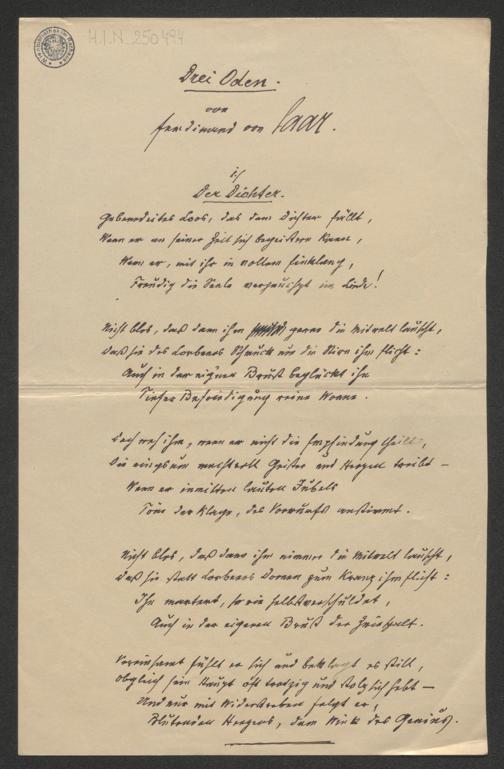 H.I.N. 250494
Drei Oden.
von
Ferdinand von Saar.
1/
Der Dichter.
Gebenedeites Loos, das dem Dichter fällt,
Wenn er an seiner Zeit sich begeistern kann,
Wenn er, mit ihr in vollem Einklang,
Freudig die Seele verhaucht im Liede!
Nicht blos, daß dann ihm gerne die Mitwelt lauscht,
Daß sie des Lorbeers Schmuck um die Stirn ihm flicht:
Auch in der eig'nen Brust beglückt ihn
Tiefer Befriedigung reine Wonne.
Doch weh ihm, wenn er nicht die Empfindung theilt,
Die ringsum machtvoll Geister und Herzen treibt –
Wenn er inmitten lauten Jubels
Töne der Klage, des Vorwurfs anstimmt.
Nicht blos, daß dann ihm nimmer die Mitwelt lauscht,
Daß sie statt Lorbeers Dornen zum Kranz ihm flicht:
Ihn martert, so wie selbstverschuldet,
Auch in der eigenen Brust der Zwiespalt.
Vereinsamt fühlt er sich und beklagt es still,
Obgleich sein Haupt oft trotzig und stolz sich hebt –
Und nur mit Widerstreben folgt er,
Blutenden Herzens, dem Wink des Genius.